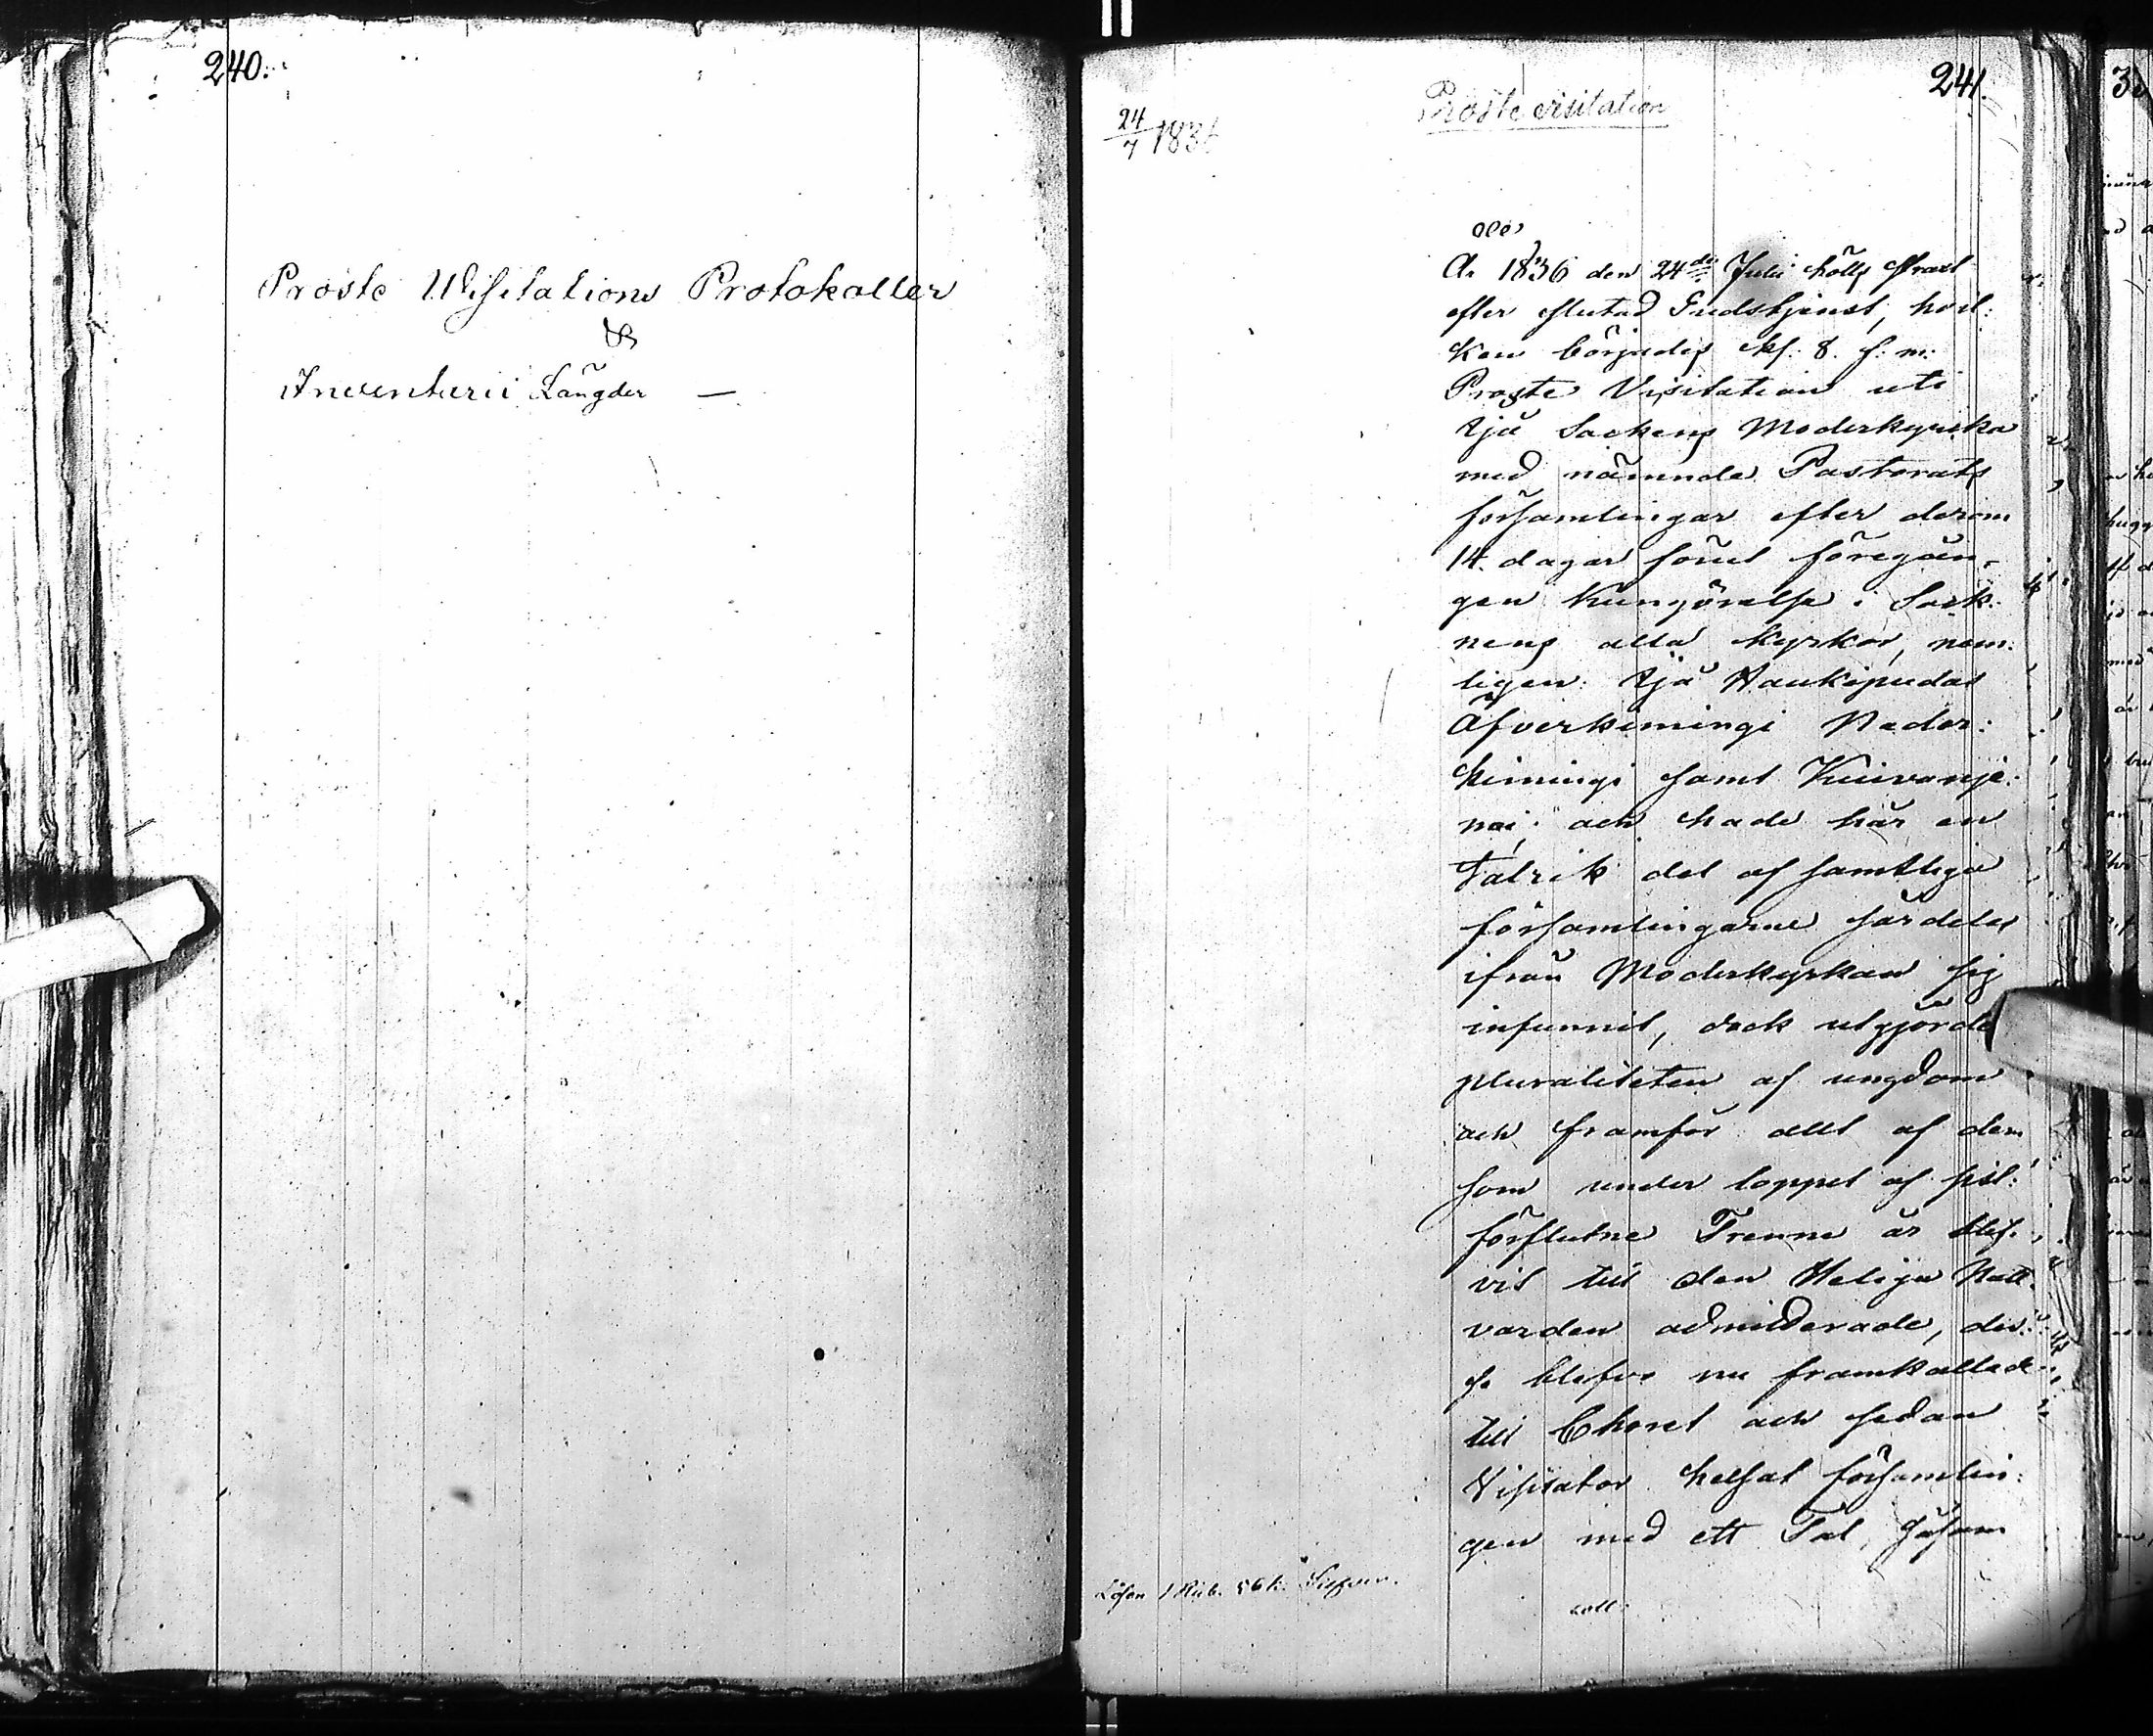 240.
Proste Visitations Protokoller
&
Inventarii Längder —
241.
Proste visitation
24/7 1836
Ar 1836 den 24de Julii hölls strax
efter slutad Gudstjenst, hvil:
ken börjades kl: 8. f: m:
Proste Visitation uti
Ijå Sockens Moderkyrka
med nämnde Pastorats
församlingar efter derom
14 dagar förut föregån-
gen kungörelse i Sock:
nens alla kyrkor, nem:
ligen: Ijå Haukipudas
Öfverkiminge Neder:
kiminge samt Kuivanje:
mi; och hade här en
talrik del af samtliga
församlingarne särdeles
ifrån Moderkyrkan sig
infunnit, dock utgjorde
pluraliteten af ungdom
och framför allt af dem
som under loppet af sist:
förflutne Trenne år blif:
vit till den Heliga Natt:
varden admitterade, des:
se blefvo nu framkallade
till Choret och sedan
Visitator helsat församlin:
gen med ett Tal, såsom
Lösen 1 Rub. 56 k: Silfver.
coll: